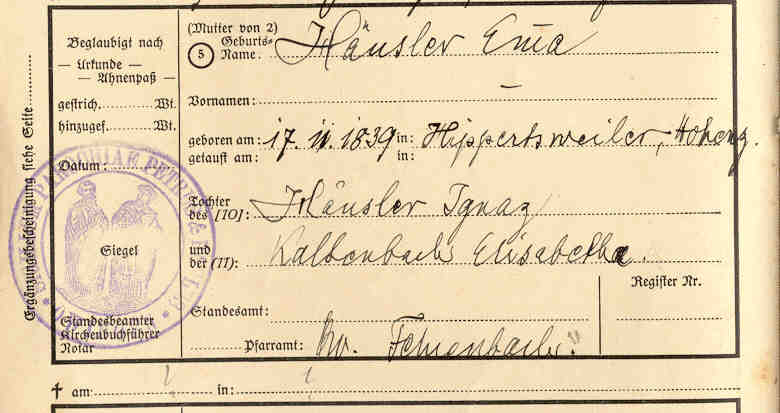 Beglaubigt nach
— Urkunde —
— Ahnenpaß —
gestrich. Wt.
hinzugef. Wt.
Datum:
Siegel
Standesbeamter
Kirchenbuchführer
Notar
Ergänzungsbescheinigung siehe Seite
PAROCHIAE PETRI
(Mutter von 2)
5 Geburts-
Name. Häusler Ema
Vornamen: —
geboren am: 17. 11. 1839 in: Hippertsweiler, Hohenz.
getauft am: in:
Tochter
des [10]: Häusler Ignaz
und
der (11): Kaltenbach Elisabetha.
Register Nr.
Standesamt:
Pfarramt:
† am: in: